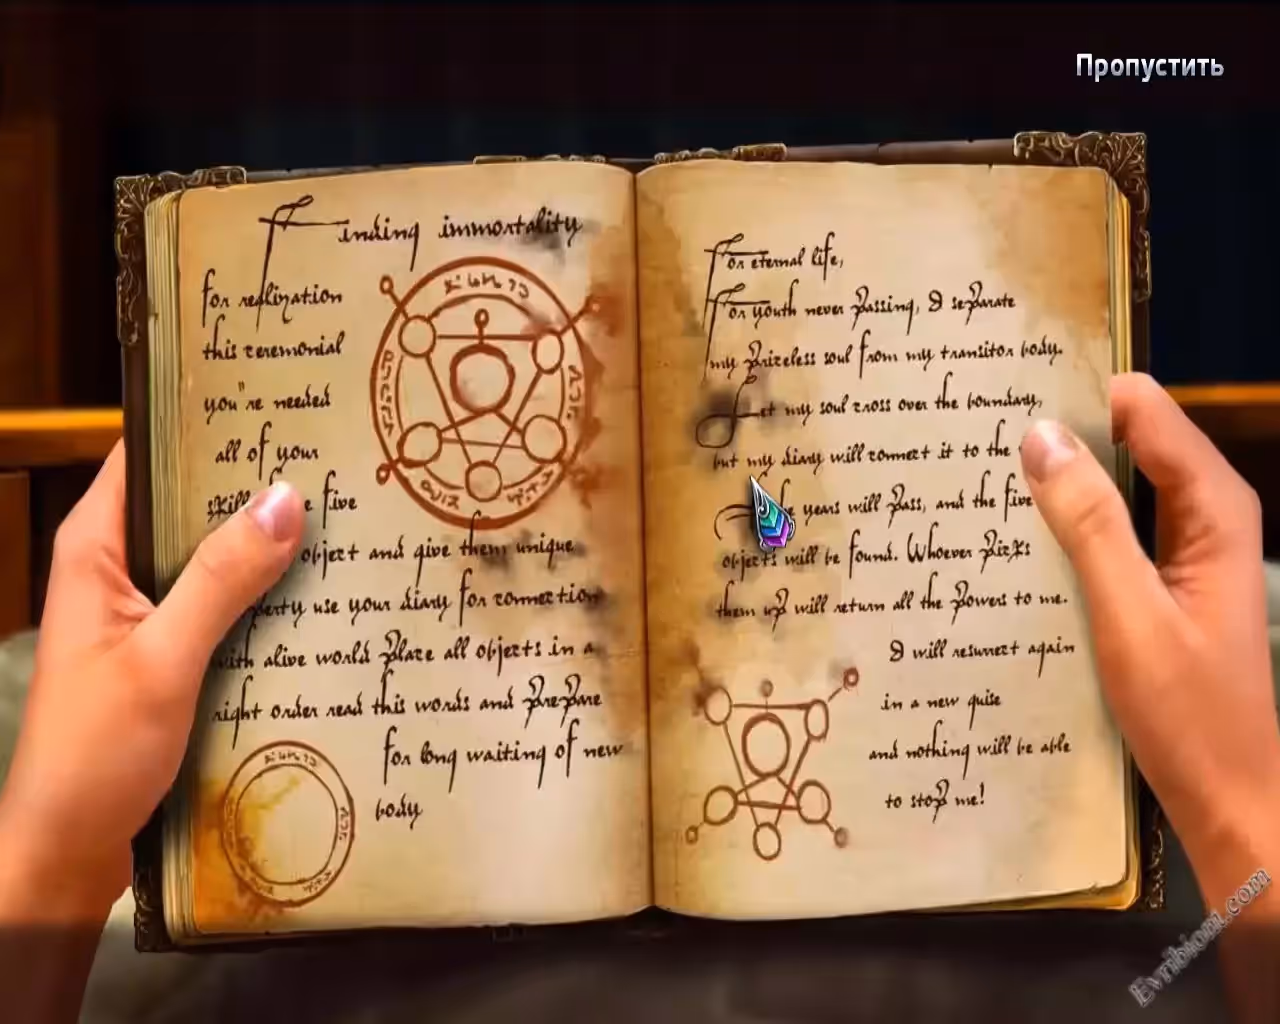 Пропустить
Finding immortality
For realization
this ceremonial
you"re needed
all of your
five
object and give them unique
use your diary for connection
with alive world Place all objects in a
right order read this words and prepare
for long waiting of new
body
For eternal life,
For youth never passing, I separate
my priceless soul from my transitor body.
Let my soul cross over the boundary,
but my diary will connect it to the
years will pass, and the five
objects will be found. Whoever picks
them up will return all the powers to me.
I will resurrect again
in a new guise
and nothing will be able
to stop me!
Evribiom.com